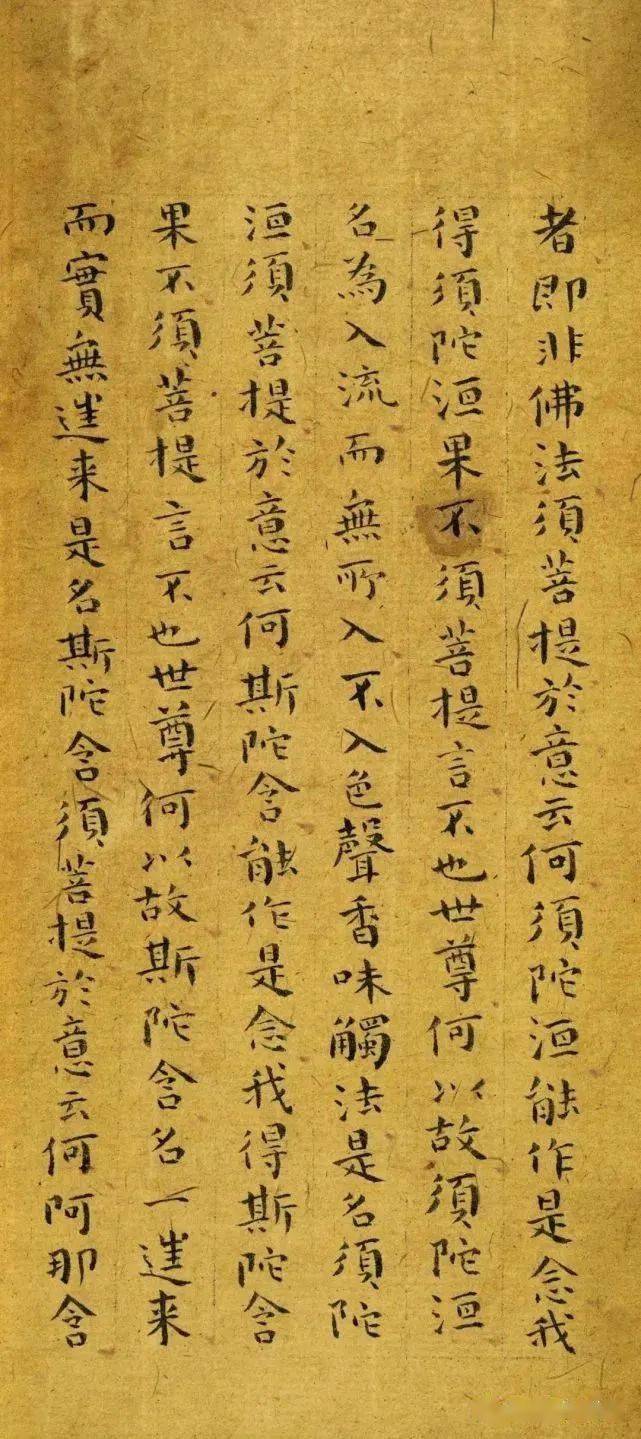 者即非佛法須菩提於意云何須陀洹能作是念我
得須陀洹果不須菩提言不也世尊何以故須陀洹
名為入流而無所入不入色聲香味觸法是名須陀
洹須菩提於意云何斯陀含能作是念我得斯陀含
果不須菩提言不也世尊何以故斯陀含名一𨓏来
而實無𨓏来是名斯陀含須菩提於意云何阿那含